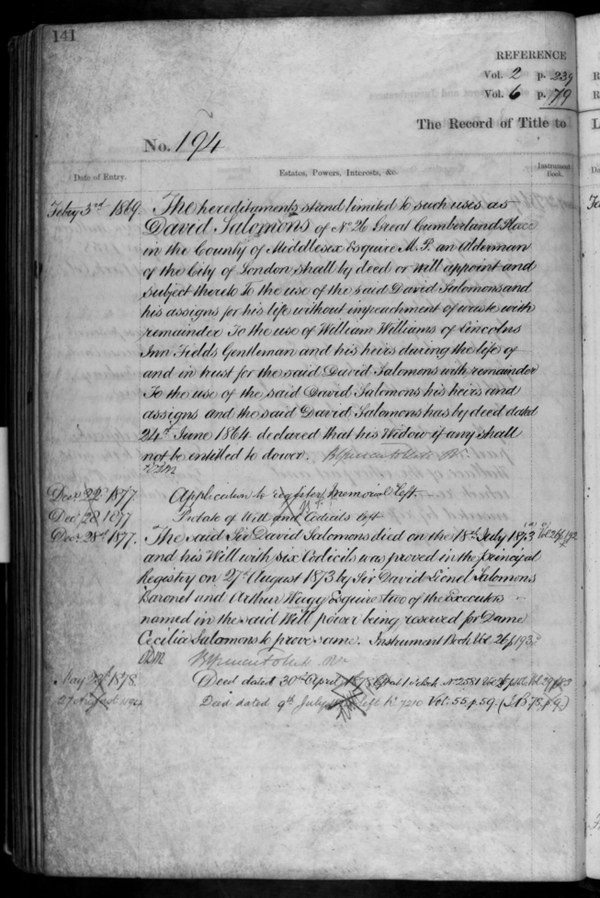 141
REFERENCE
Vol. 2 p. 239
Vol. 6 p. 79
The Record of Title to
No. 194
Date of Entry. Estates, Powers, Interests, &c. Instrument Book.
Feby 3rd 1869. The hereditaments stand limited to such uses as
David Salomons of No 26 Great Cumberland Place
in the County of Middlesex Esquire M.P. an Alderman
of the City of London shall by deed or will appoint and
subject thereto To the use of the said David Salomons and
his assigns for his life without impeachment of waste with
remainder To the use of William Williams of Lincolns
Inn Fields Gentleman and his heirs during the life of
and in trust for the said David Salomons with remainder
To the use of the said David Salomons his heirs and
assigns and the said David Salomons has by deed dated
24th June 1864 declared that his Widow if any shall
not be entitled to dower.
Decr 22d 1877. Application to register Memorial left.
Decr 28 1877 Probate of Will and Codicils left
Decr 28th 1877. The said Sir David Salomons died on the 18th July 1873
and his Will with six Codicils was proved in the principal
Registry on 27th August 1873 by Sir David Lionel Salomons
Baronet and Arthur Wagg Esquire two of the Executors
named in the said Will power being reserved for Dame
Cecilia Salomons to prove same. Instrument Book Vol. 26 p 193
May 1878. Deed dated 30th April 1878 No 2581
27 Deed dated 9th July left No 7210 Vol. 55. p. 59.